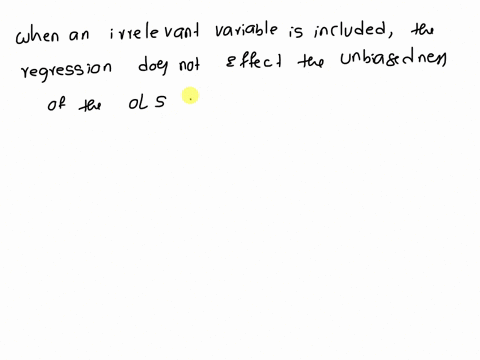 when an irrelevant variable is included, the
regression does not effect the unbiasedness
of the OLS